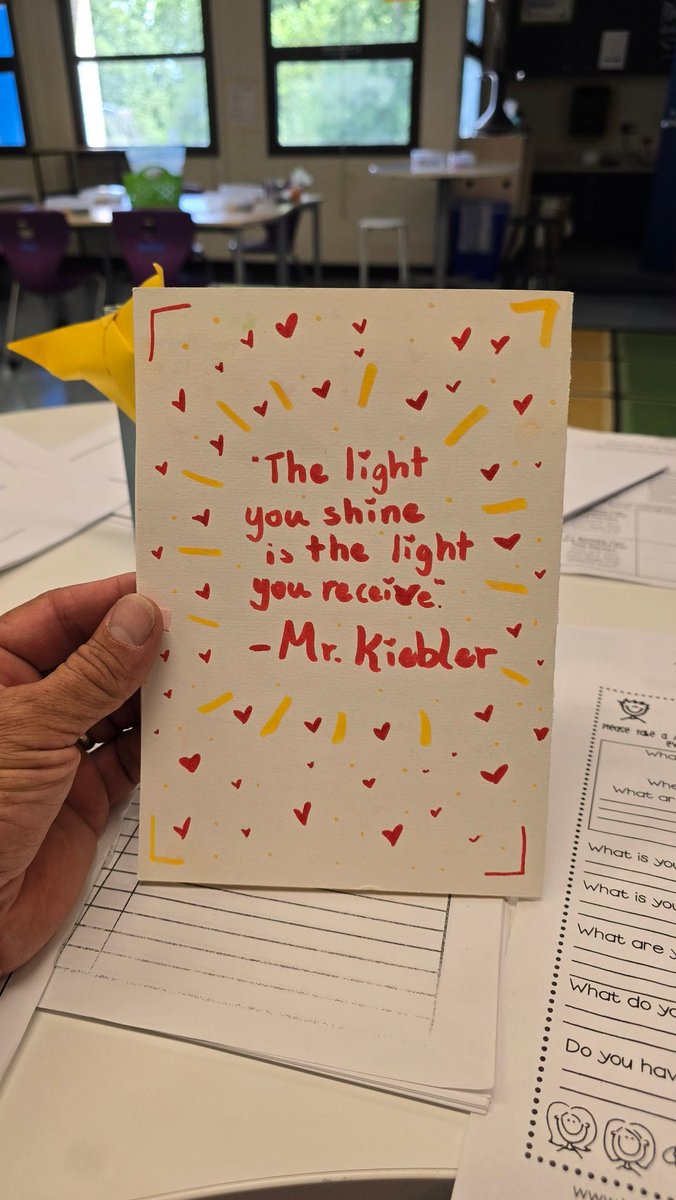 "The light
you shine
is the light
you receive."
-Mr. Kiebler
Please take a
What
What ar
What is you
What is you
What are y
What do yo
Do you hav
www